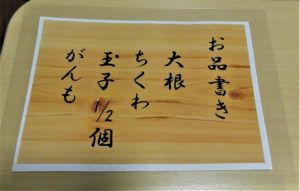 お品書き
大根
ちくわ
玉子 1/2個
がんも